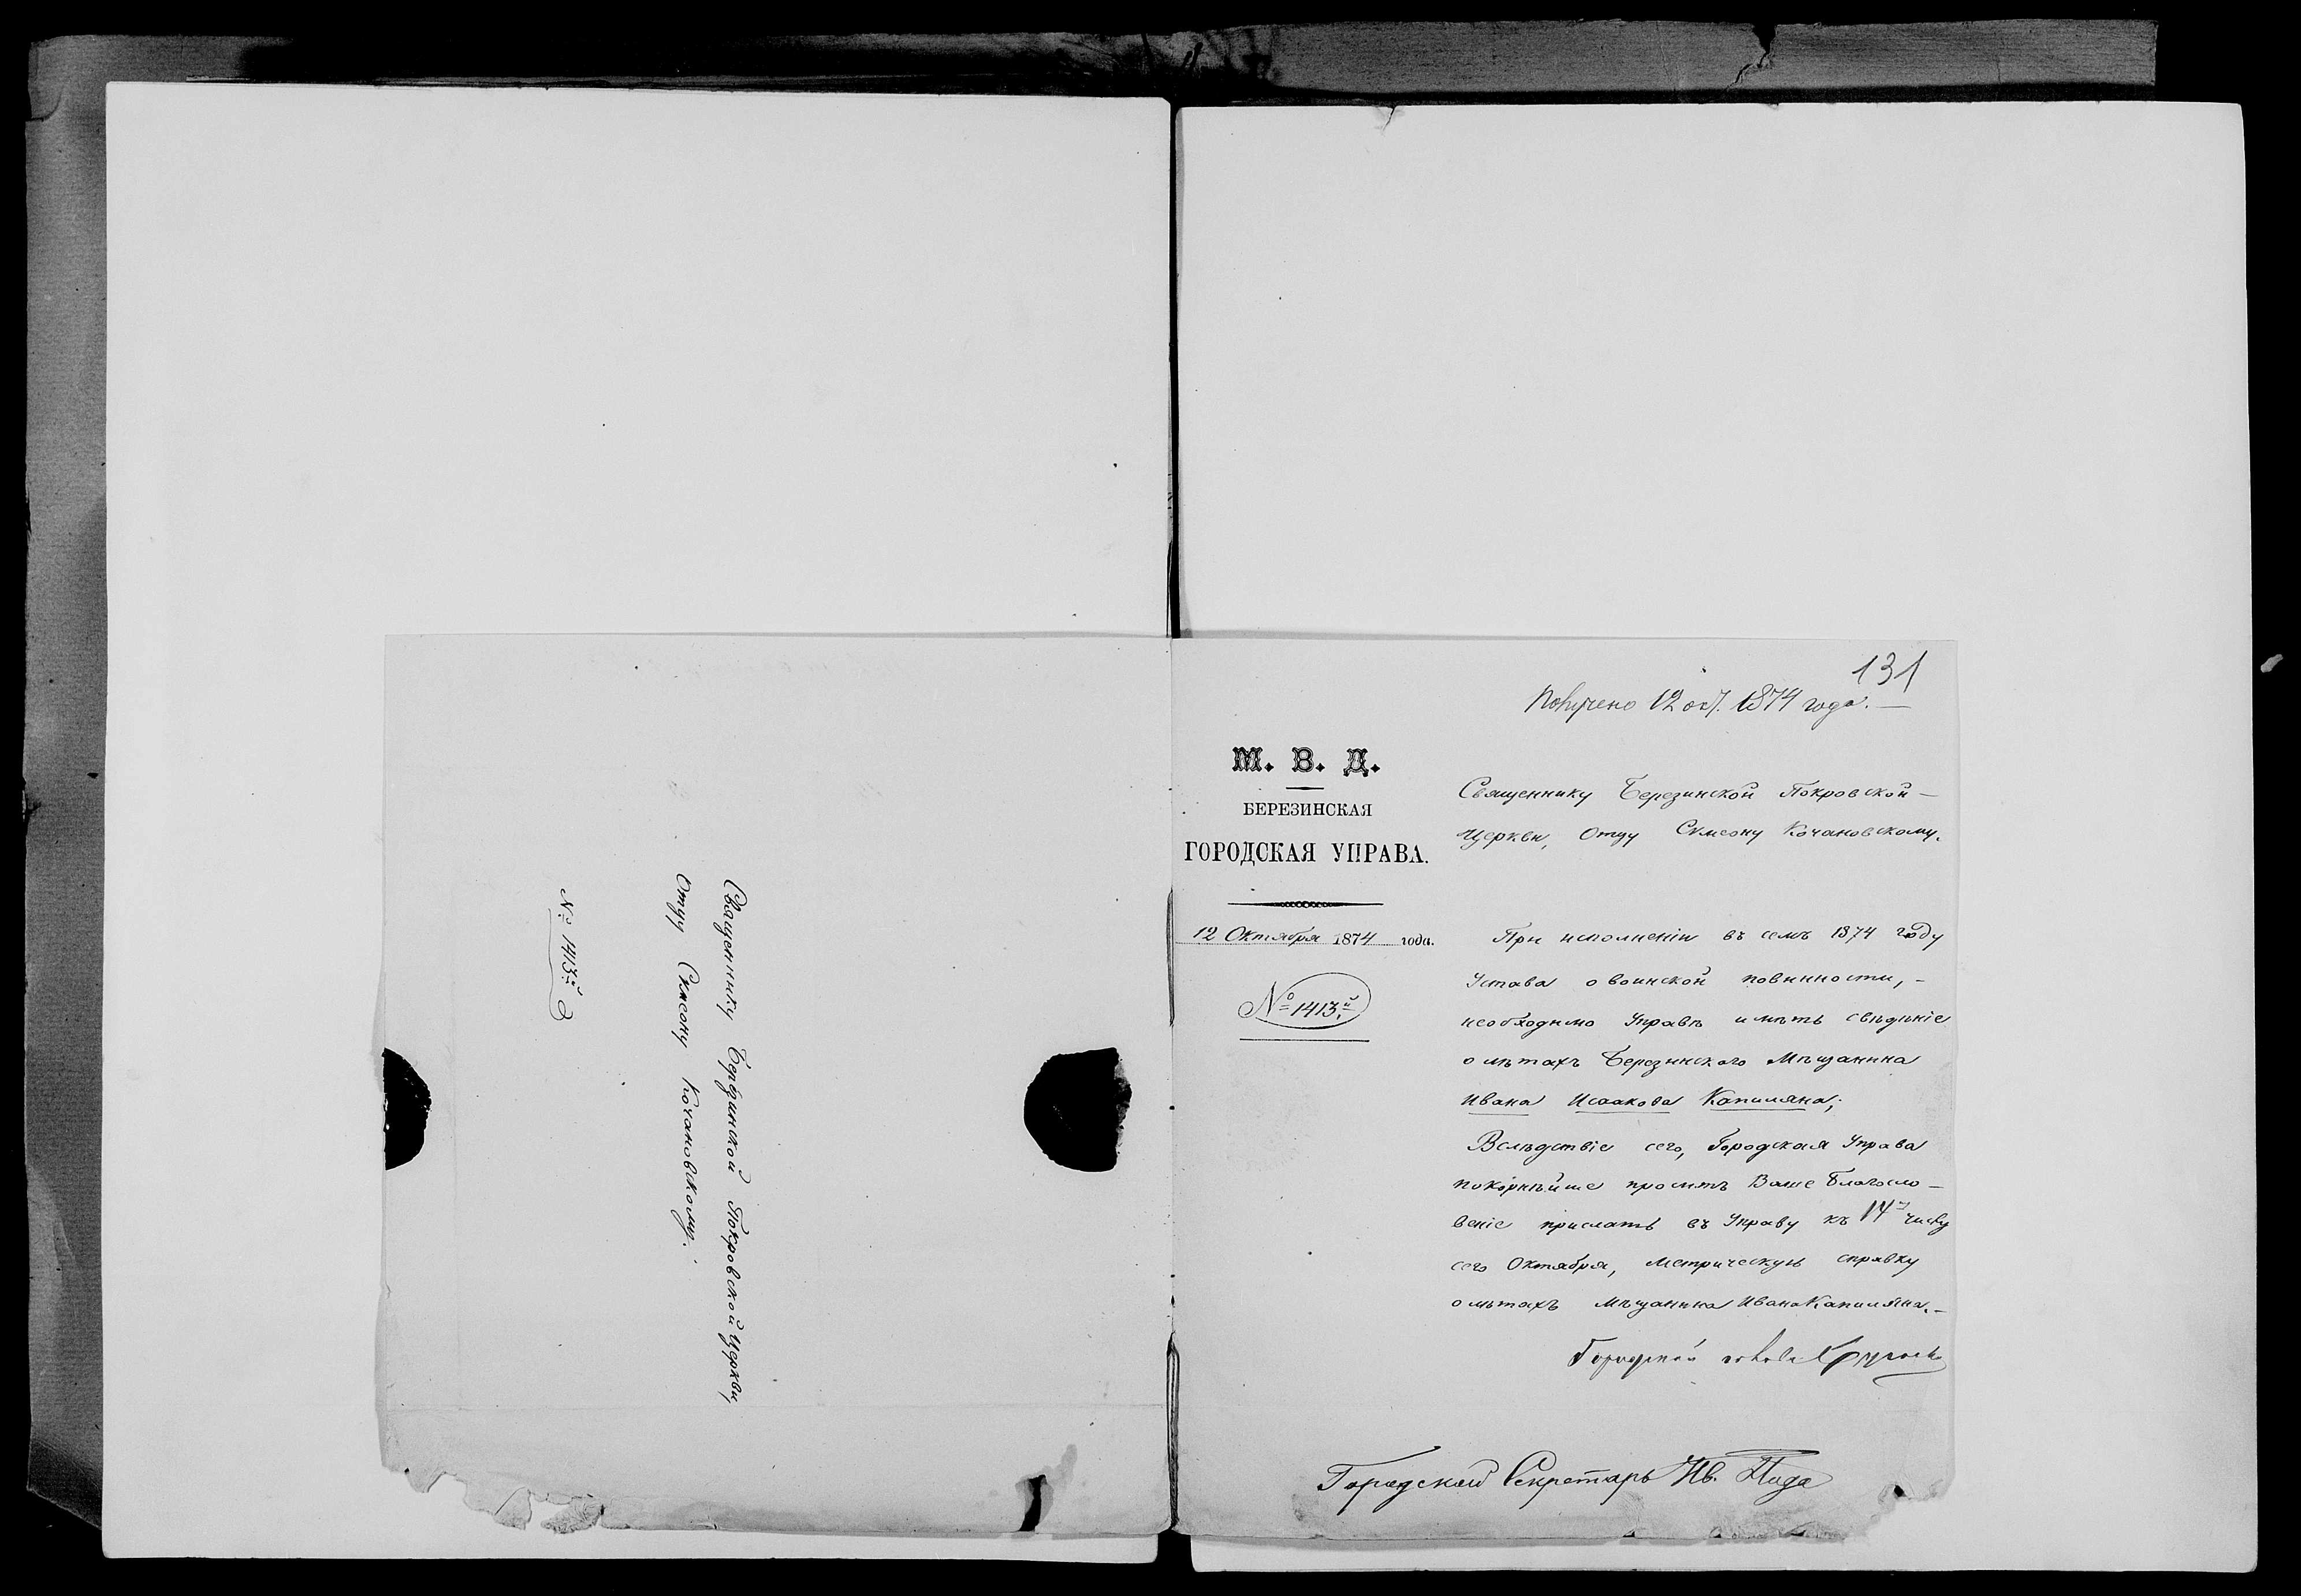 Священнику Березинской Покровской Церкви,
Отцу Симеону Кочановскому.
№ 1413й
131
Получено 12 окт. 1874 года.—
М. В. Д.
БЕРЕЗИНСКАЯ
ГОРОДСКАЯ УПРАВА.
12 Октября 1874 года.
№ 1413й
Священнику Березинской Покровской—
Церкви, Отцу Симеону Кочановскому.
При исполненіи въ семъ 1874 году
Устава о воинской повинности,-
необходимо Управѣ имѣть свѣдѣніе
о лѣтахъ Березинскаго Мѣщанина
Ивана Исаакова Капиляна;
Вслѣдствіе сего, Городская Управа
покорнѣйше проситъ Ваше Благосло—
веніе прислать въ Управу къ 14 числу
сего Октября, метрическую справку
о лѣтахъ мѣщанина Ивана Капиляна.—
Городской голова
Городской Секретарь Ив.